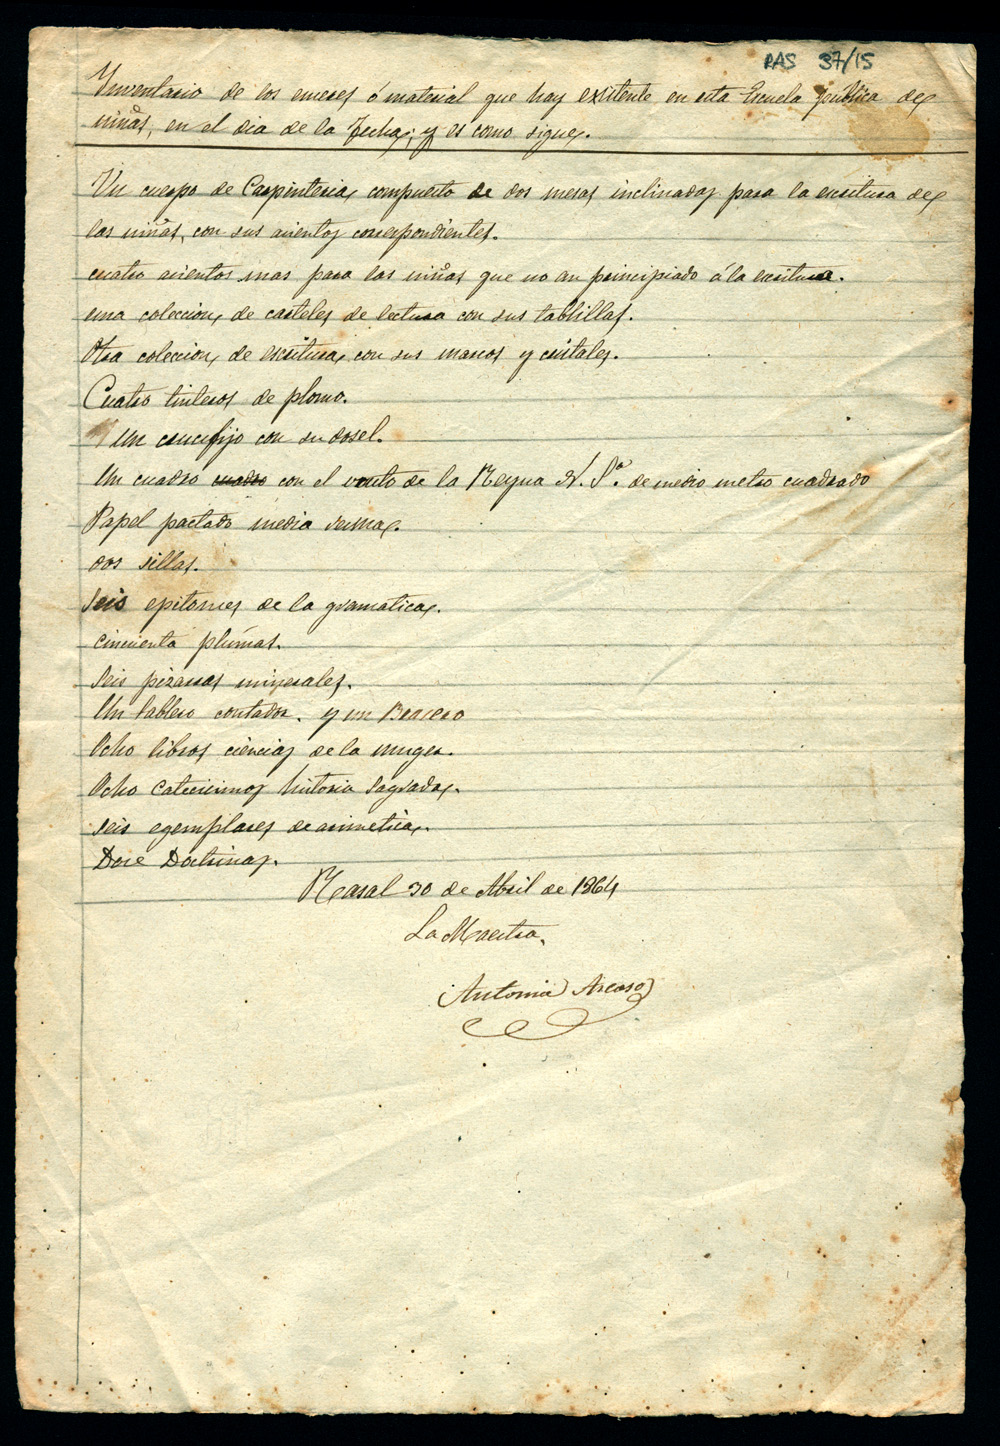 RAS 37/15
Ynventario de los enceres ó material que hay existente en esta Escuela publica de
niñas, en el dia de la fecha; y es como sigue.
Un cuerpo de Carpinteria, compuesto de dos mesas inclinadas para la escritura de
las niñas, con sus asientos correspondientes.
cuatro asientos mas para las niñas que no an principiado á la escritura.
una coleccion, de carteles de lectura con sus tablillas.
Otra coleccion, de escritura, con sus marcos y cristales.
Cuatro tinteros de plomo.
Un crucifijo con su dosel.
Un cuadro cuadro con el de la Reyna N. S.ª de medio metro cuadrado
Papel pactado media resma.
dos sillas.
Seis epitomes de la gramatica.
cincuenta plumas.
Seis pizarras minerales.
Un tablero contador. y un Brasero
Ocho libros ciencias de la muger.
Ocho catecismos historia Sagrada.
Seis egemplares de arimetica.
Doce Doctrinas.
Rasal 30 de Abril de 1864
La Maestra,
Antonia Arcaso